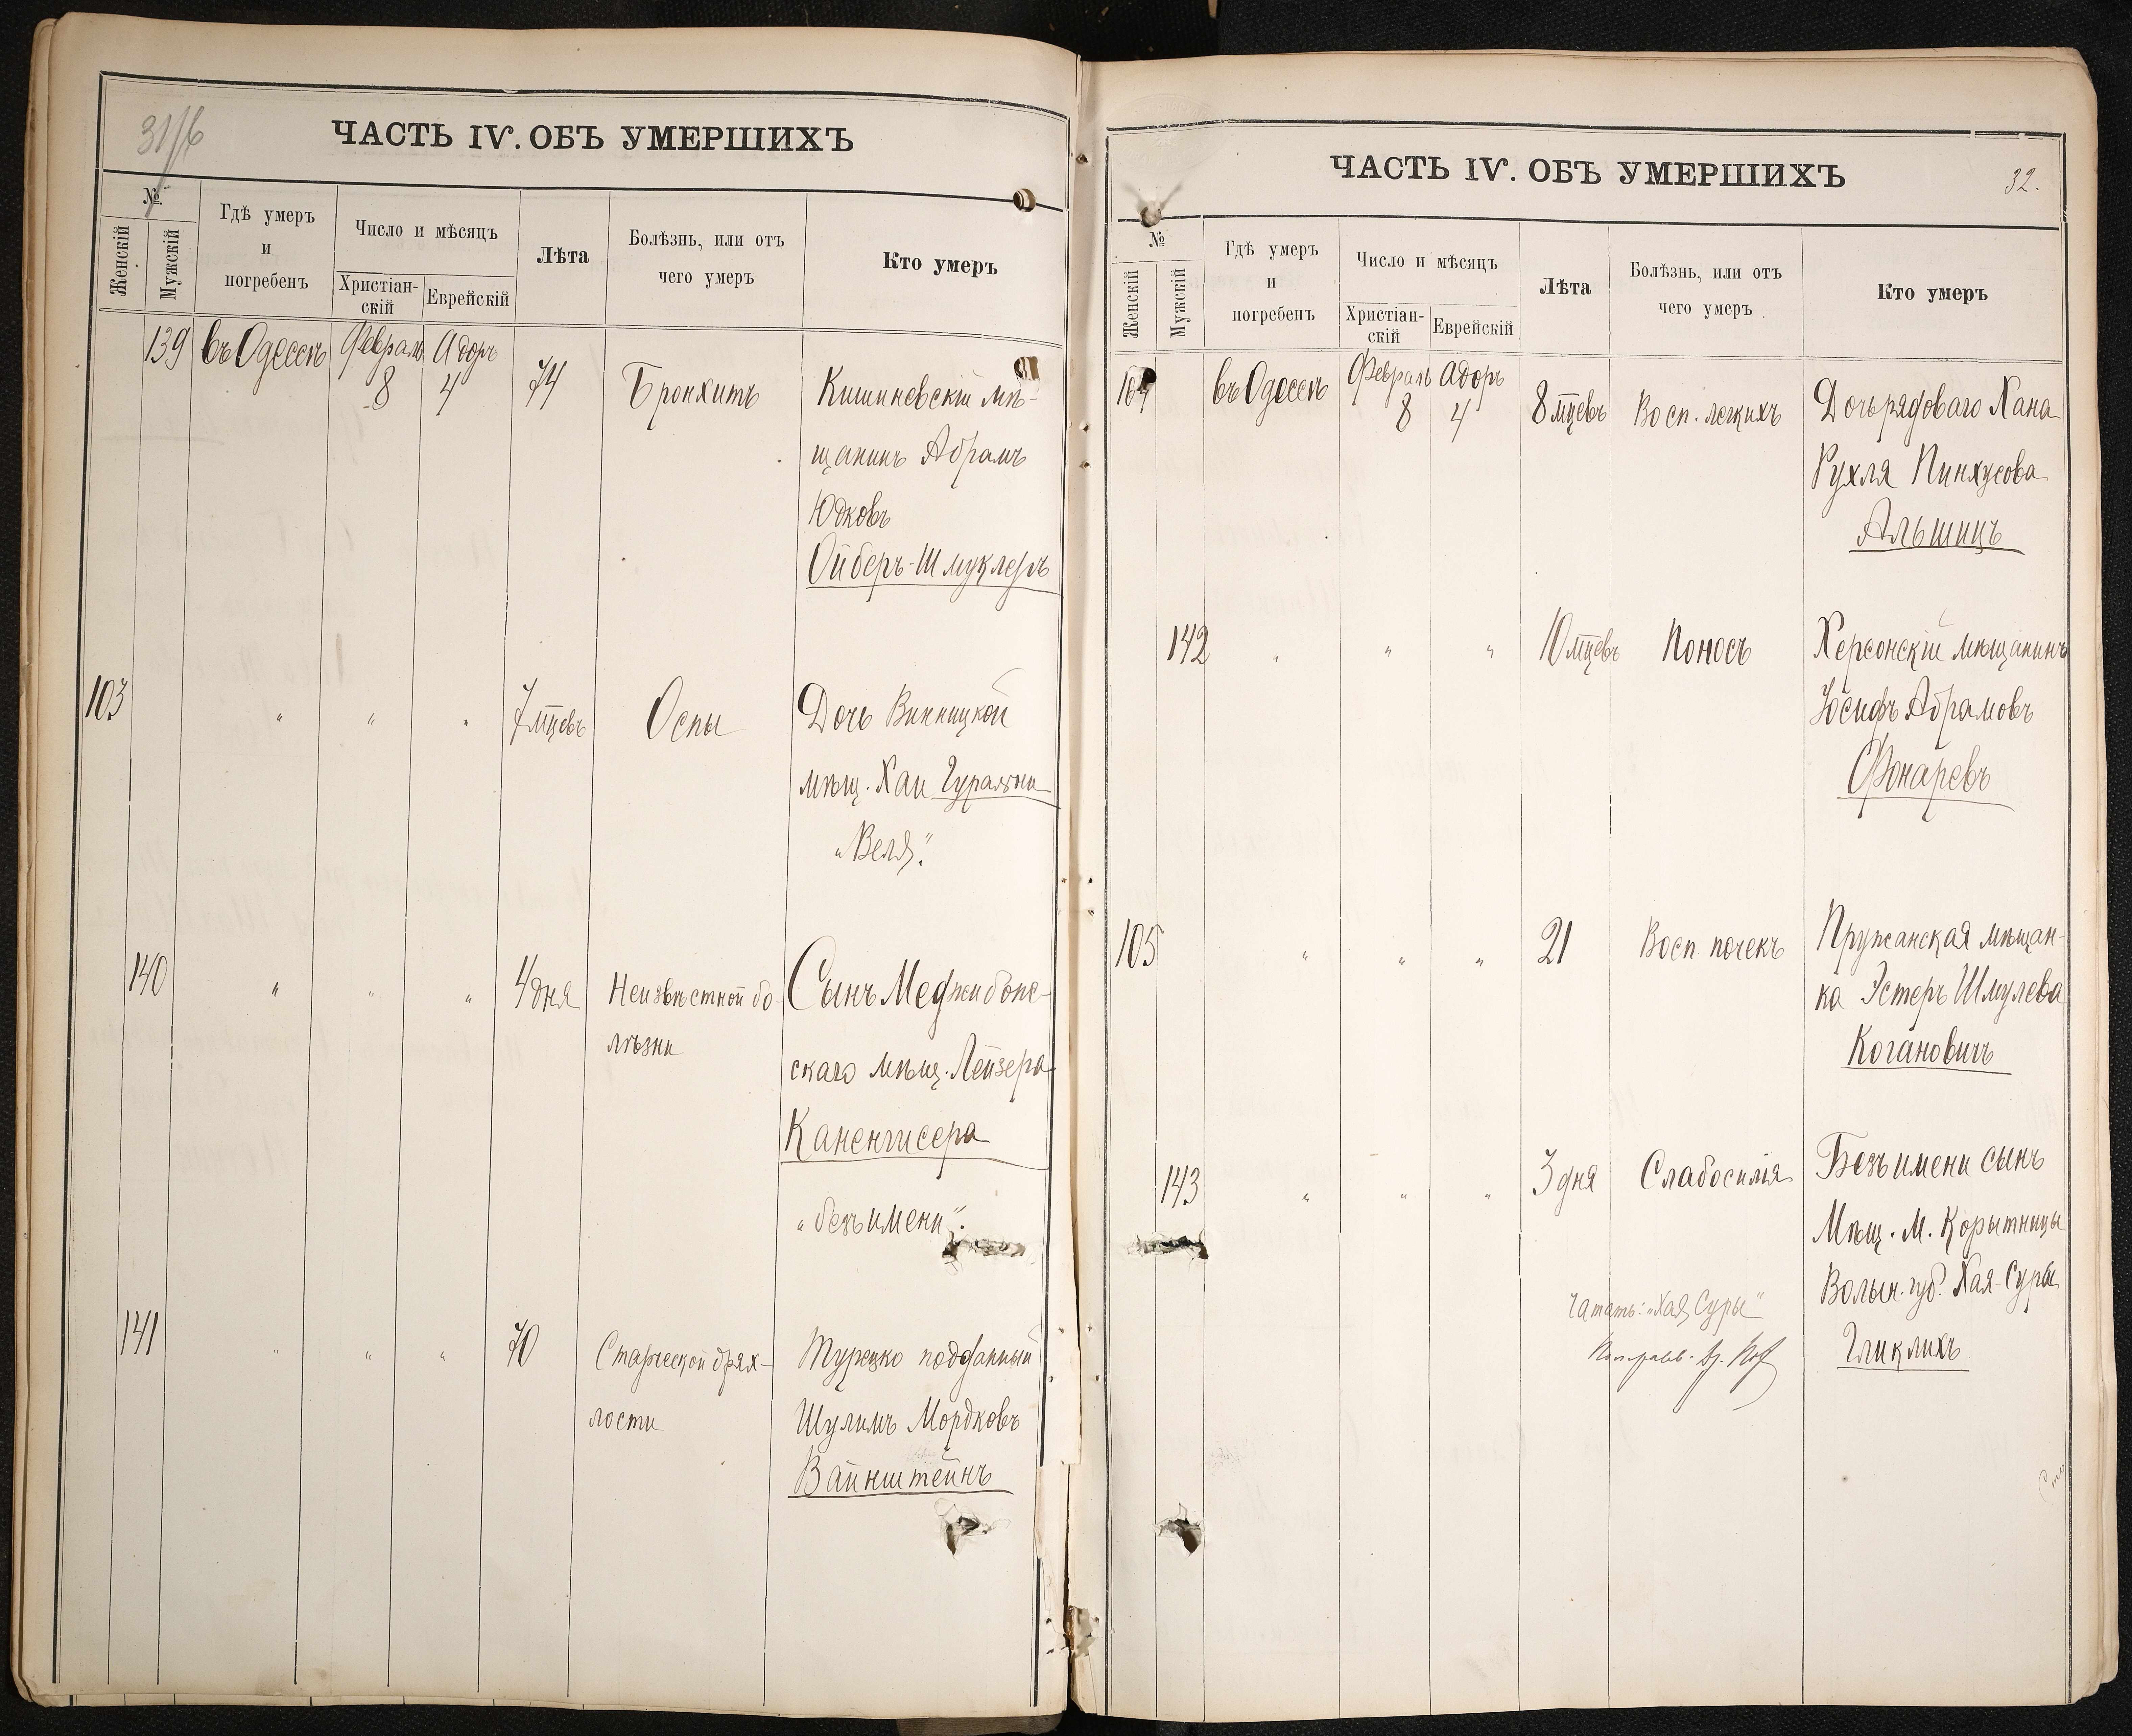 31/6
ЧАСТЬ IV. ОБЪ УМЕРШИХЪ
№
Женскій
Мужскій
Гдѣ умеръ
и
погребенъ
Число и мѣсяцъ
Христіан-
скій
Еврейскій
Лѣта
Болѣзнь, или отъ
чего умеръ
Кто умеръ
139 въ Одессѣ Февраль Адоръ
8 4 74 Бронхитъ Кишиневскій мѣ-
щанинъ Абрамъ
Юдковъ
Ойберъ-Шмуклеръ
103 " " " 7 мцевъ Оспы Дочь Винницкой
мѣщ. Хаи Гуральни
"Веля".
140 " " " 4 дня Неизвѣстной бо- Сынъ Меджибоже-
лѣзни
скаго мѣщ. Лейзера
Каненгисера
"безъ имени".
141 " " " 70 Старческой дрях- Турецко подданный
лости Шулимъ Мордковъ
Вайнштейнъ
ЧАСТЬ IV. ОБЪ УМЕРШИХЪ
32.
№
Женскій
Мужскій
Гдѣ умеръ
и
погребенъ
Число и мѣсяцъ
Христіан-
скій
Еврейскій
Лѣта
Болѣзнь, или отъ
чего умеръ
Кто умеръ
104 въ Одессѣ Февраль Адоръ
8 4 8 мцевъ Восп. легкихъ Дочь рядоваго Хана
Рухля Пинхусова
Альшицъ
142 " " " 10 мцевъ Поносъ Херсонскій мѣщанинъ
Іосифъ Абрамовъ
Фонаревъ
105 " " " 21 Восп. почекъ Пружанская мѣщан-
ка Эстеръ Шмулева
Когановичъ
143 " " " 3 дня Слабосилія Безъ имени сынъ
Мѣщ. М. Корытницы
Волын. губ. Хая-Суры
Гликлихъ
Читать: "Хая Суры"